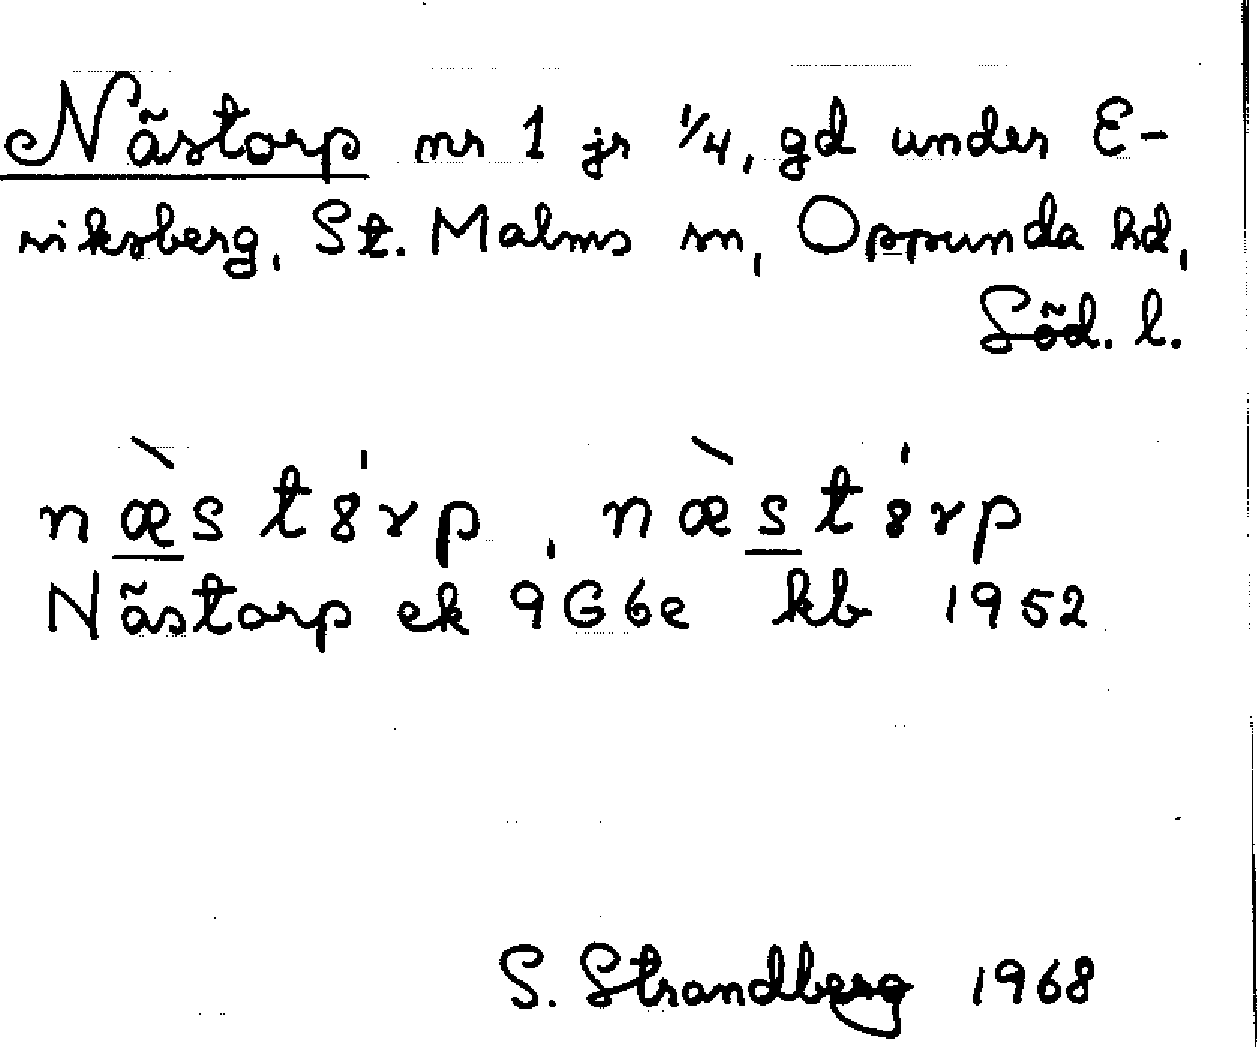 Nästorp nr 1 jr 1/4, gd under E-
riksberg, St. Malms sn, Oppunda hd,
Söd. l.
næ̀stȣ́rp, næ̀stȣ́rp
Nästorp ek 9G6e kb 1952
S. Strandberg 1968